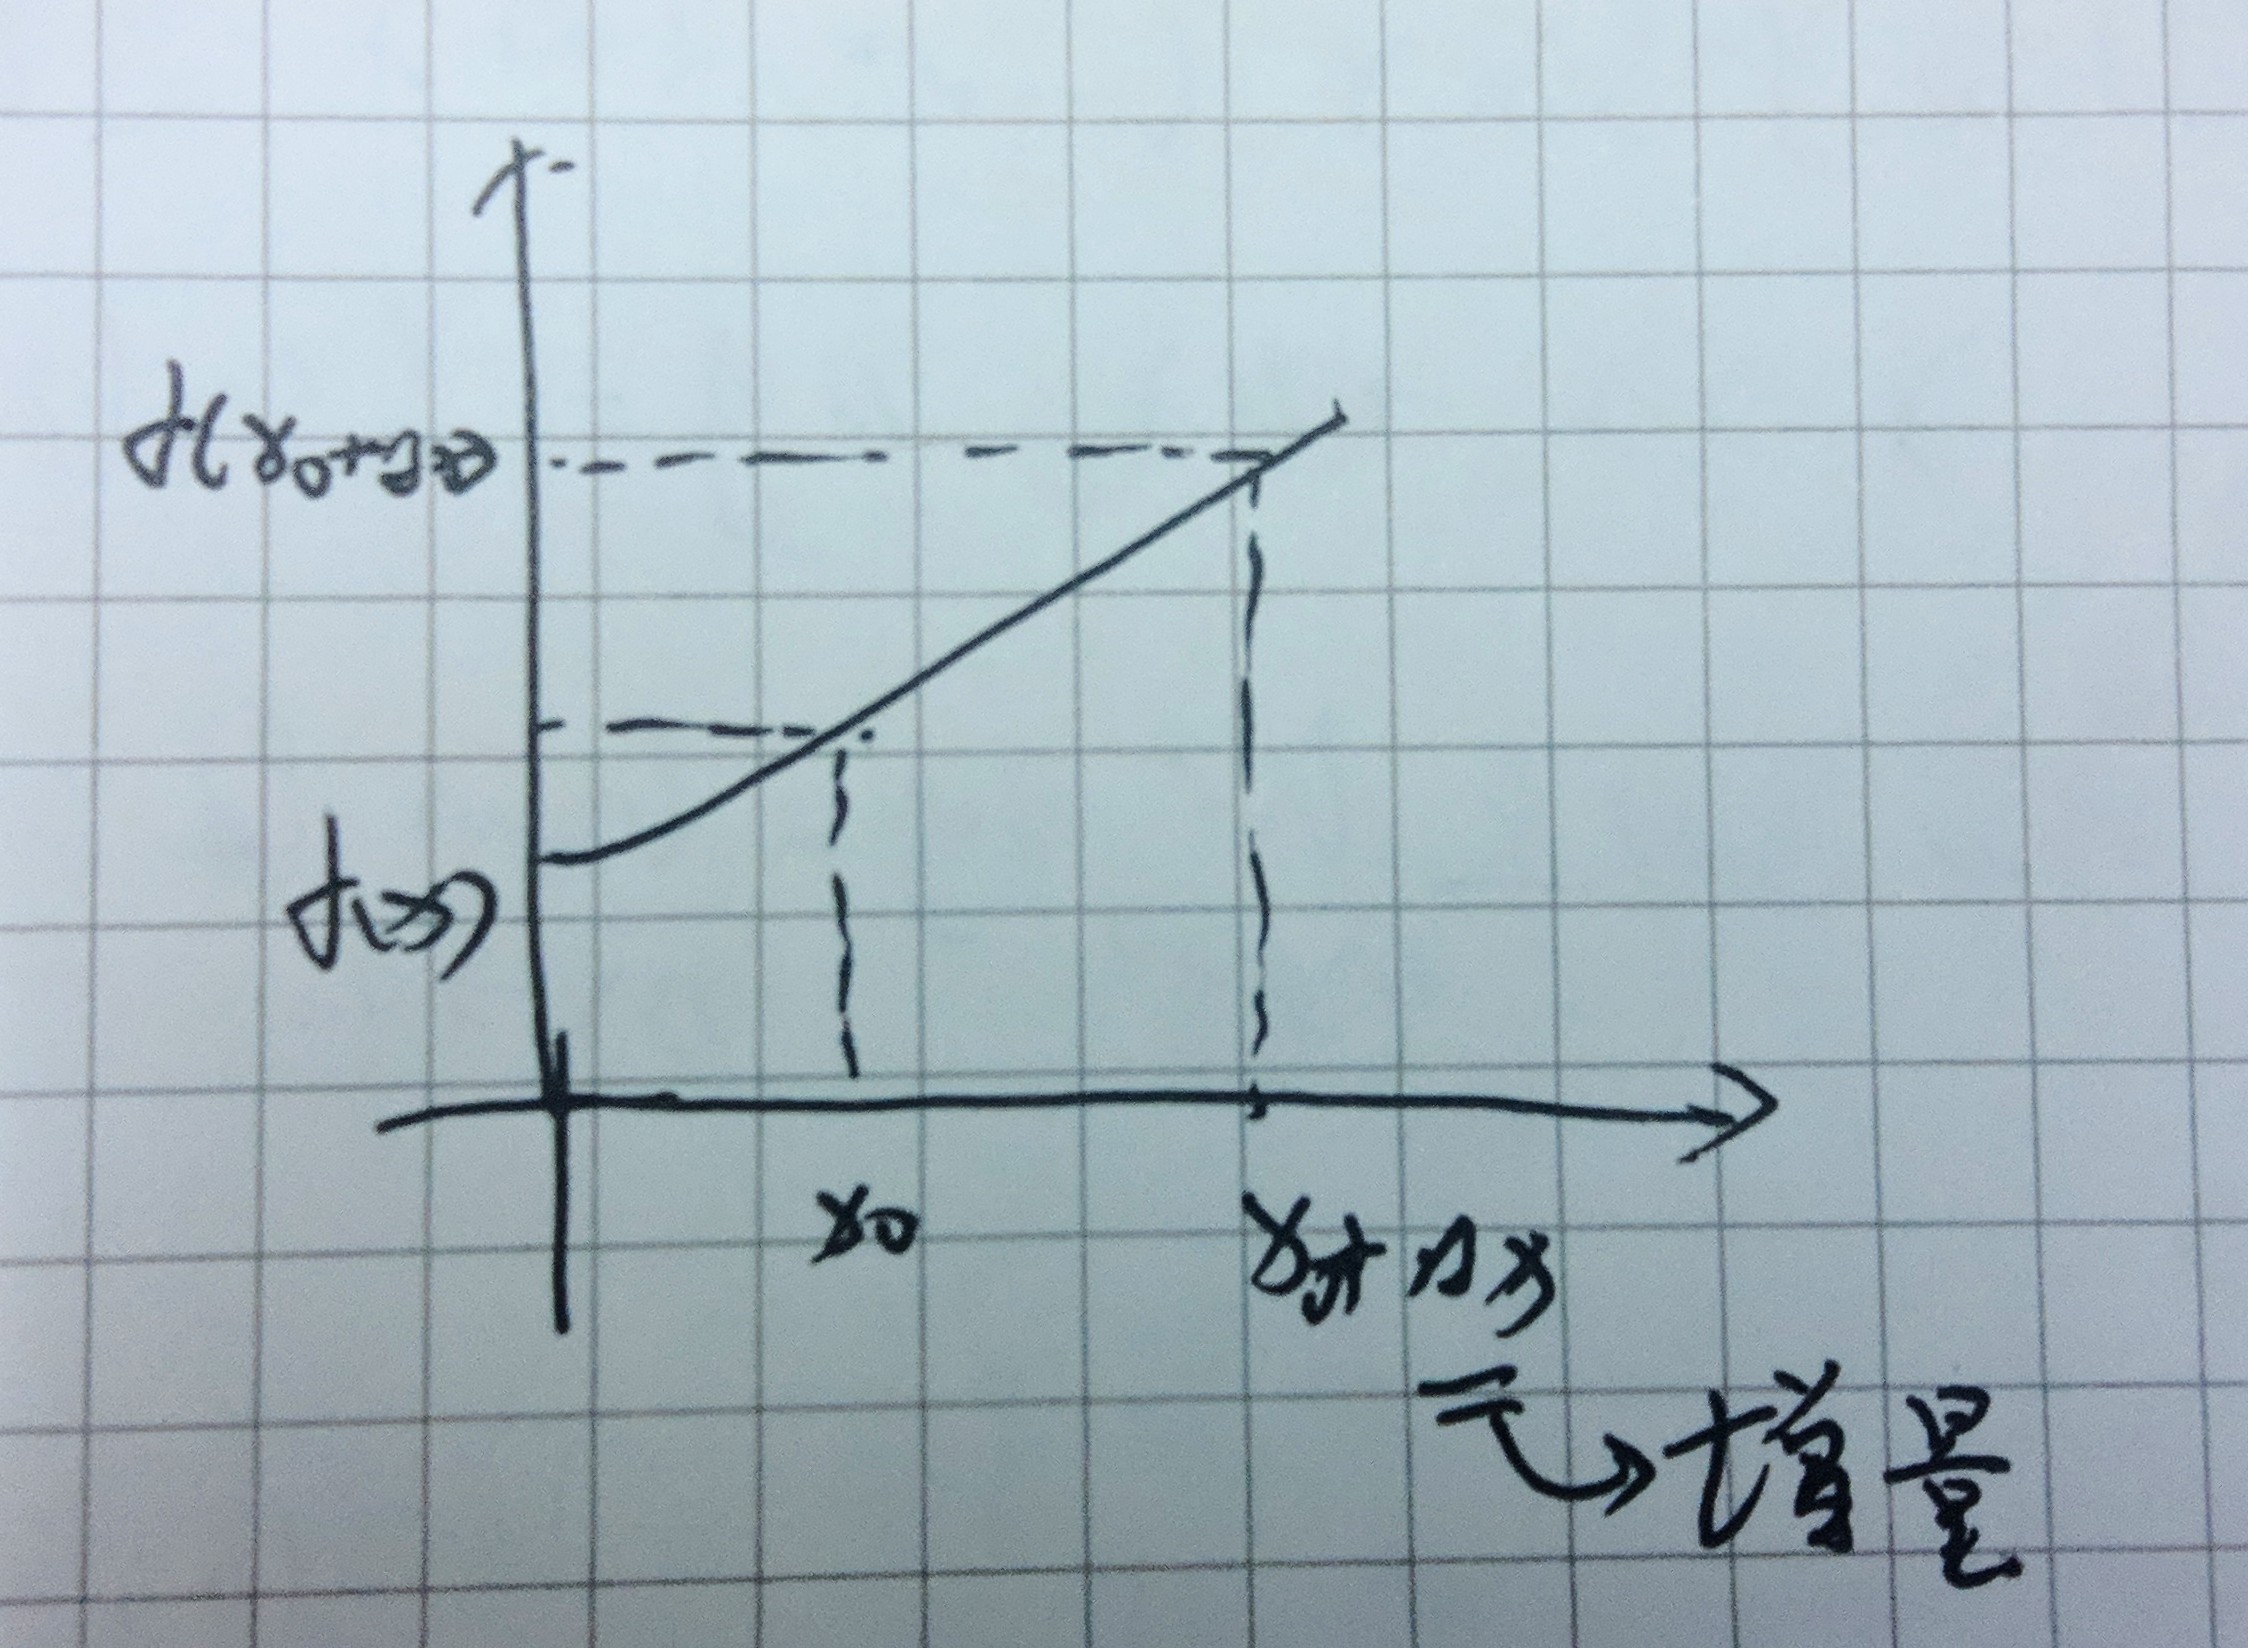 f(x₀+Δx)
f(x)
x₀
x₀+Δx
增量